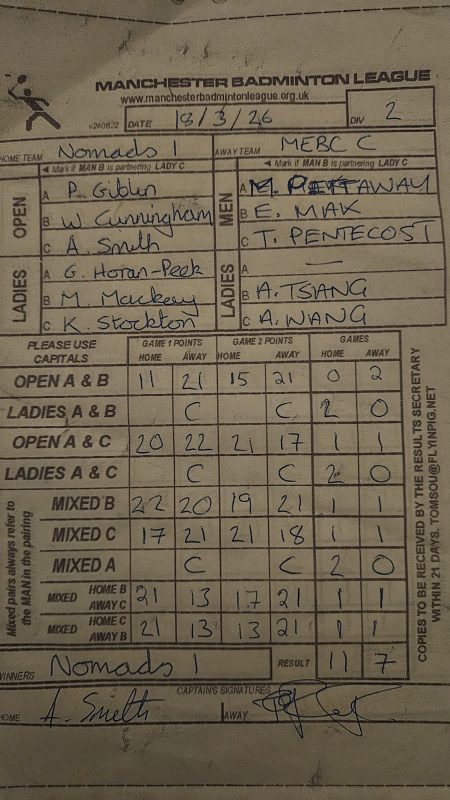 MANCHESTER BADMINTON LEAGUE
www.manchesterbadmintonleague.org.uk
v240622 DATE 18/3/26 DIV 2
HOME TEAM Nomads 1 AWAY TEAM MERC C
◄ Mark if MAN B is partnering LADY C ◄ Mark if MAN B is partnering LADY C
OPEN A P. Giblin MEN A M. PATTAWAY
B W Cunningham B E. MAK
C A. Smith C T. PENTECOST
LADIES A G. Horan-Peek LADIES A —
B M. Mackay B A. TSANG
C K. Stockton C A. WANG
PLEASE USE CAPITALS GAME 1 POINTS GAME 2 POINTS GAMES
HOME AWAY HOME AWAY HOME AWAY
OPEN A & B 11 21 15 21 0 2
LADIES A & B C C 2 0
OPEN A & C 20 22 21 17 1 1
LADIES A & C C C 2 0
MIXED B 22 20 19 21 1 1
MIXED C 17 21 21 18 1 1
MIXED A C C 2 0
MIXED HOME B AWAY C 21 13 17 21 1 1
MIXED HOME C AWAY B 21 13 13 21 1 1
Mixed pairs always refer to
the MAN in the pairing
WINNERS Nomads 1 RESULT 11 7
CAPTAIN'S SIGNATURES
HOME A. Smith AWAY
COPIES TO BE RECEIVED BY THE RESULTS SECRETARY
WITHIN 21 DAYS. TOMSOU@FLYINPIG.NET